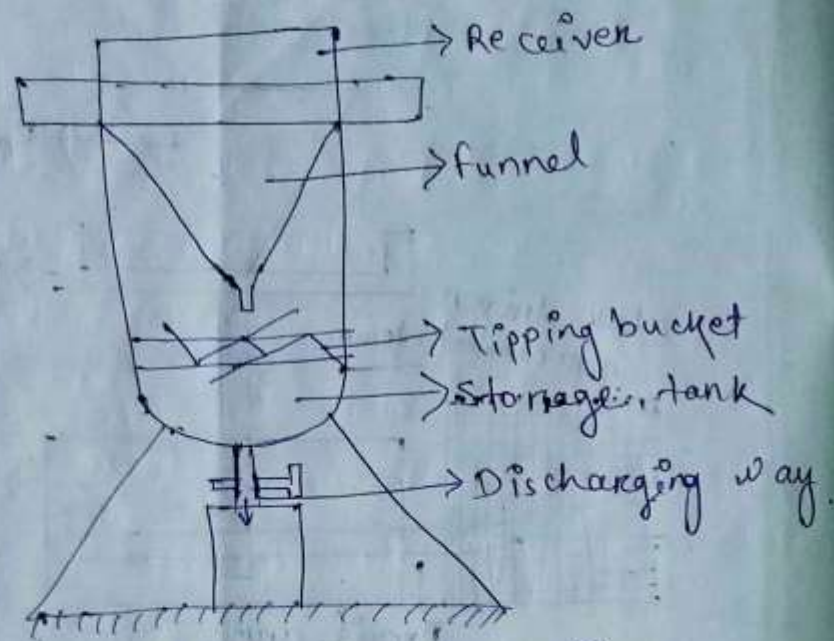 Receiver
funnel
Tipping bucket
Storage tank
Discharging way.